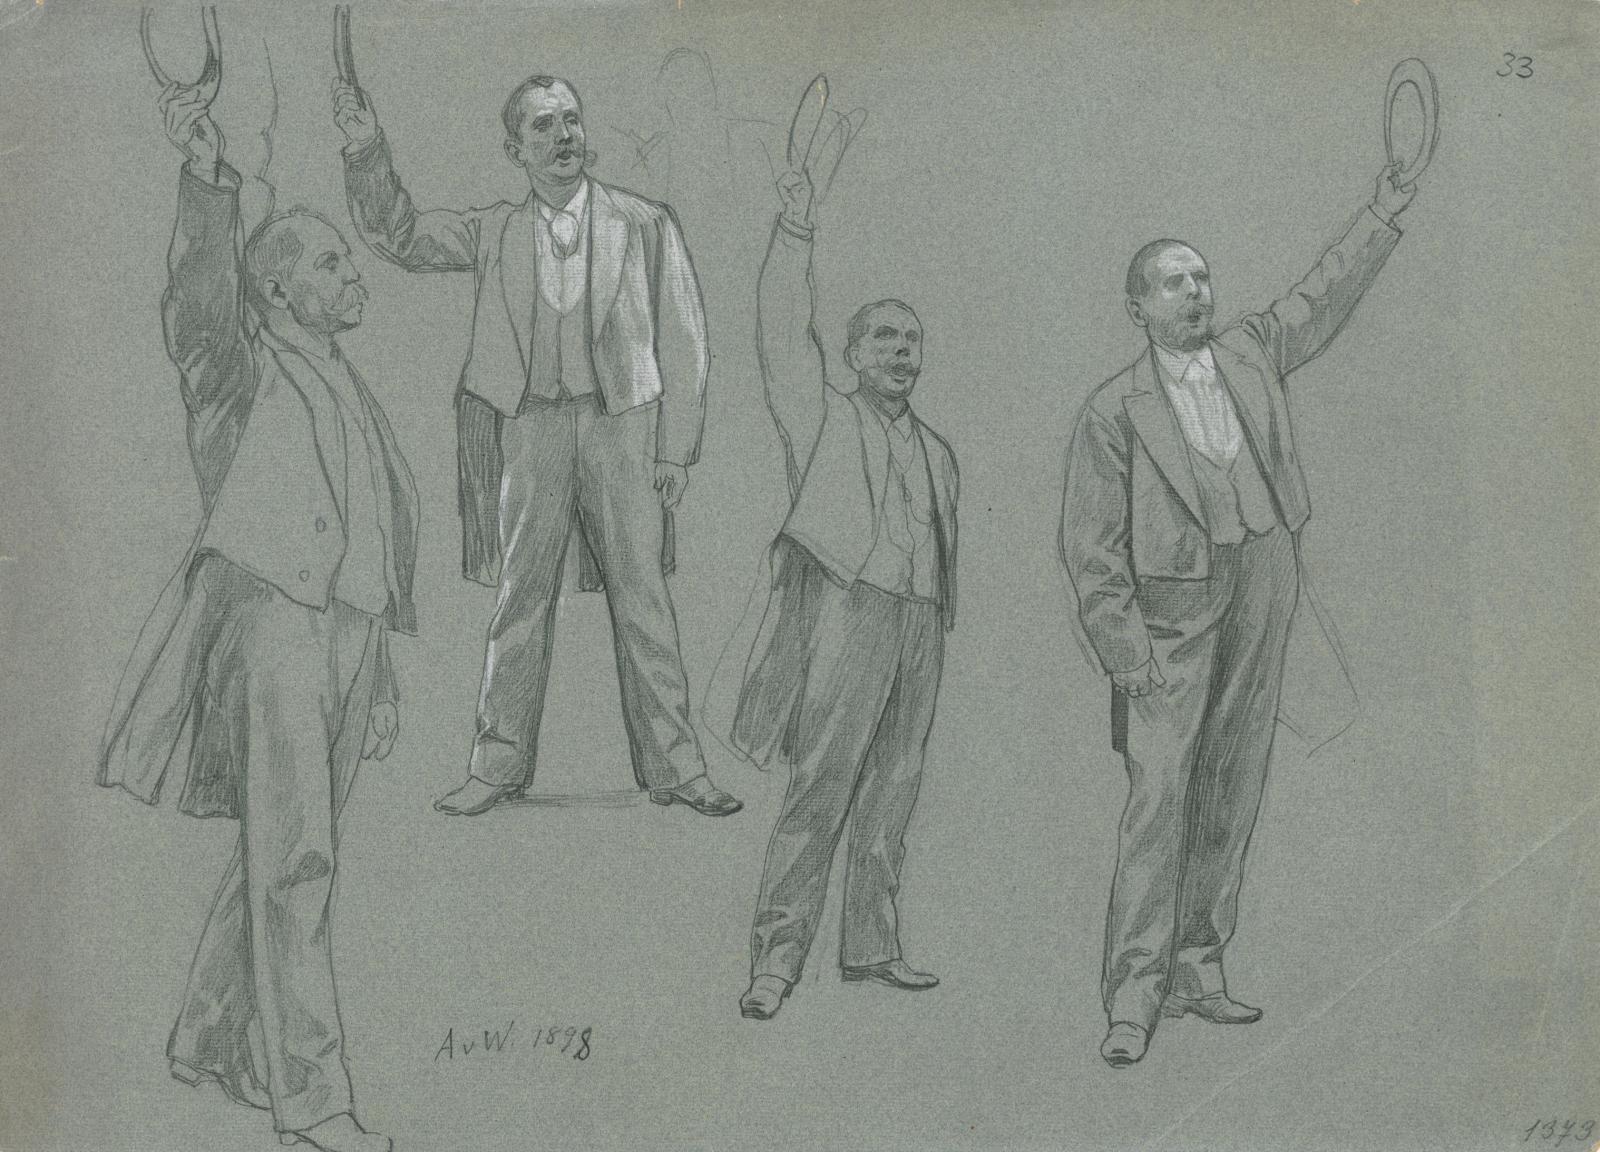 33
AvW. 1898
1373